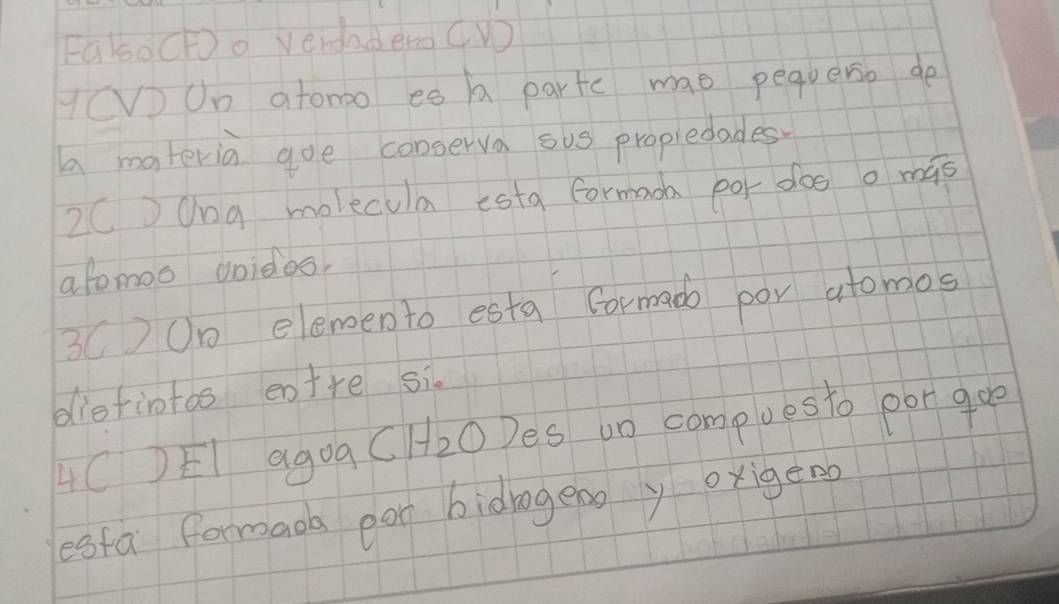 Falso(F) o Verdadero (V)
1(V) Un atomo es la parte mas pequeño de
la materia que conserva sus propiedades.
2( ) Una molecula esta formada por dos o más
atomos unidos.
3( ) Un elemento esta formado por atomos
distintos entre si.
4( ) El agua (H2O) es un compuesto por que
esta formada por hidrogeno y oxigeno